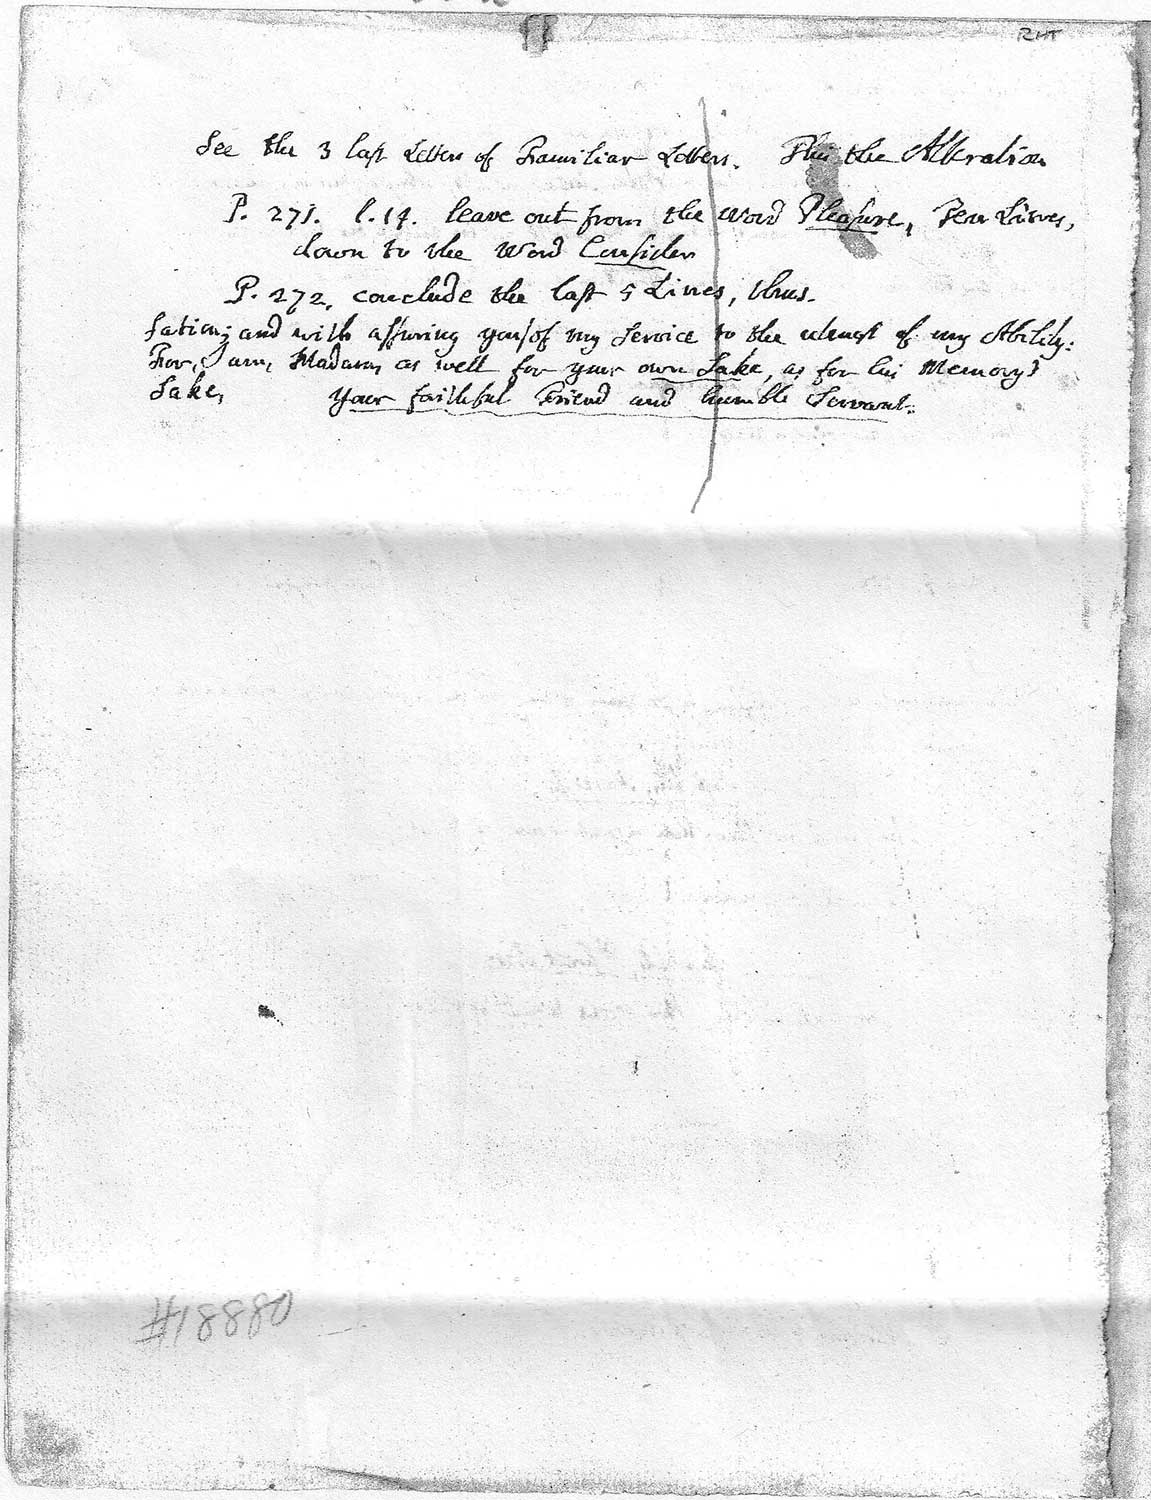 RHT
See the 3 last Letters of Familiar Letters. This the Alteration
P. 271. l. 14. leave out from the Word Pleasure, Ten Lines,
down to the Word Consider
P. 272. conclude the last 5 Lines, thus.
sation; and with assuring you of my Service to the utmost of my Ability:
For, I am, Madam, as well for your own Sake, as for his Memory's
Sake,
Your faithful Friend and humble Servant.
#18880